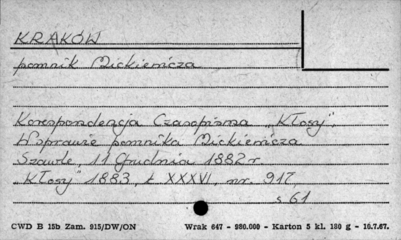 KRAKÓW
pomnik Mickiewicza
Korespondencja Czasopisma "Kłosy".
W sprawie pomnika Mickiewicza
Szawle, 11 Grudnia 1882 r.
"Kłosy" 1883, t. XXXVI, nr. 917,
s 61
CWD B 15b Zam. 915/DW/ON Wrak 647 - 950.000 - Karton 5 kl. 180 g - 16.7.67.